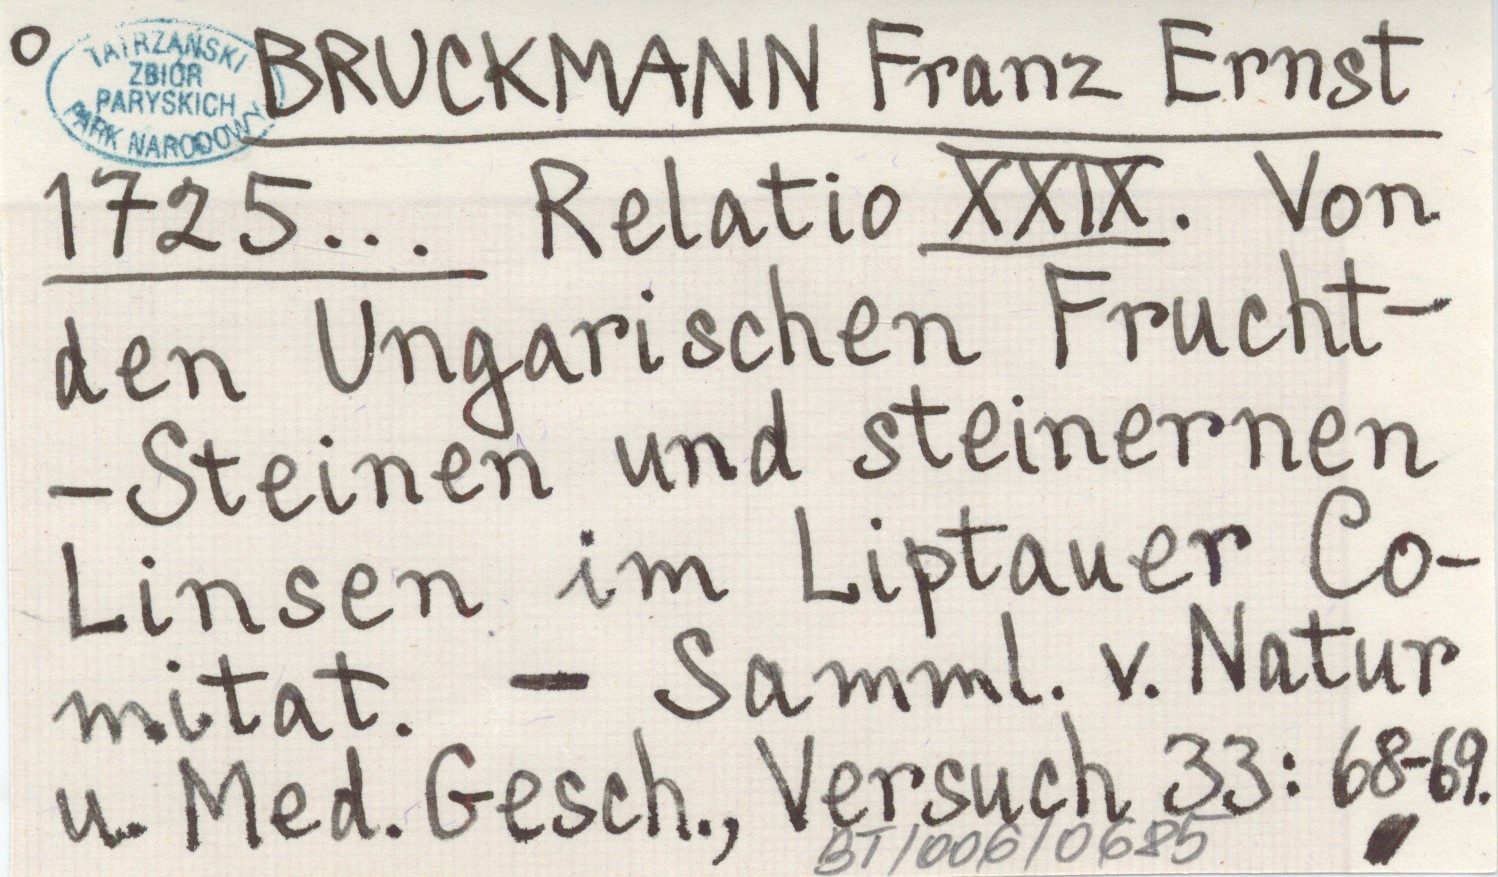 ° BRUCKMANN Franz Ernst
TATRZAŃSKI
ZBIÓR
PARYSKICH
PARK NARODOWY
1725... Relatio XXIX. Von
den Ungarischen Frucht-
-Steinen und steinernen
Linsen im Liptauer Co-
mitat. — Samml. v. Natur
u. Med. Gesch., Versuch 33: 68-69.
BT/006/0685